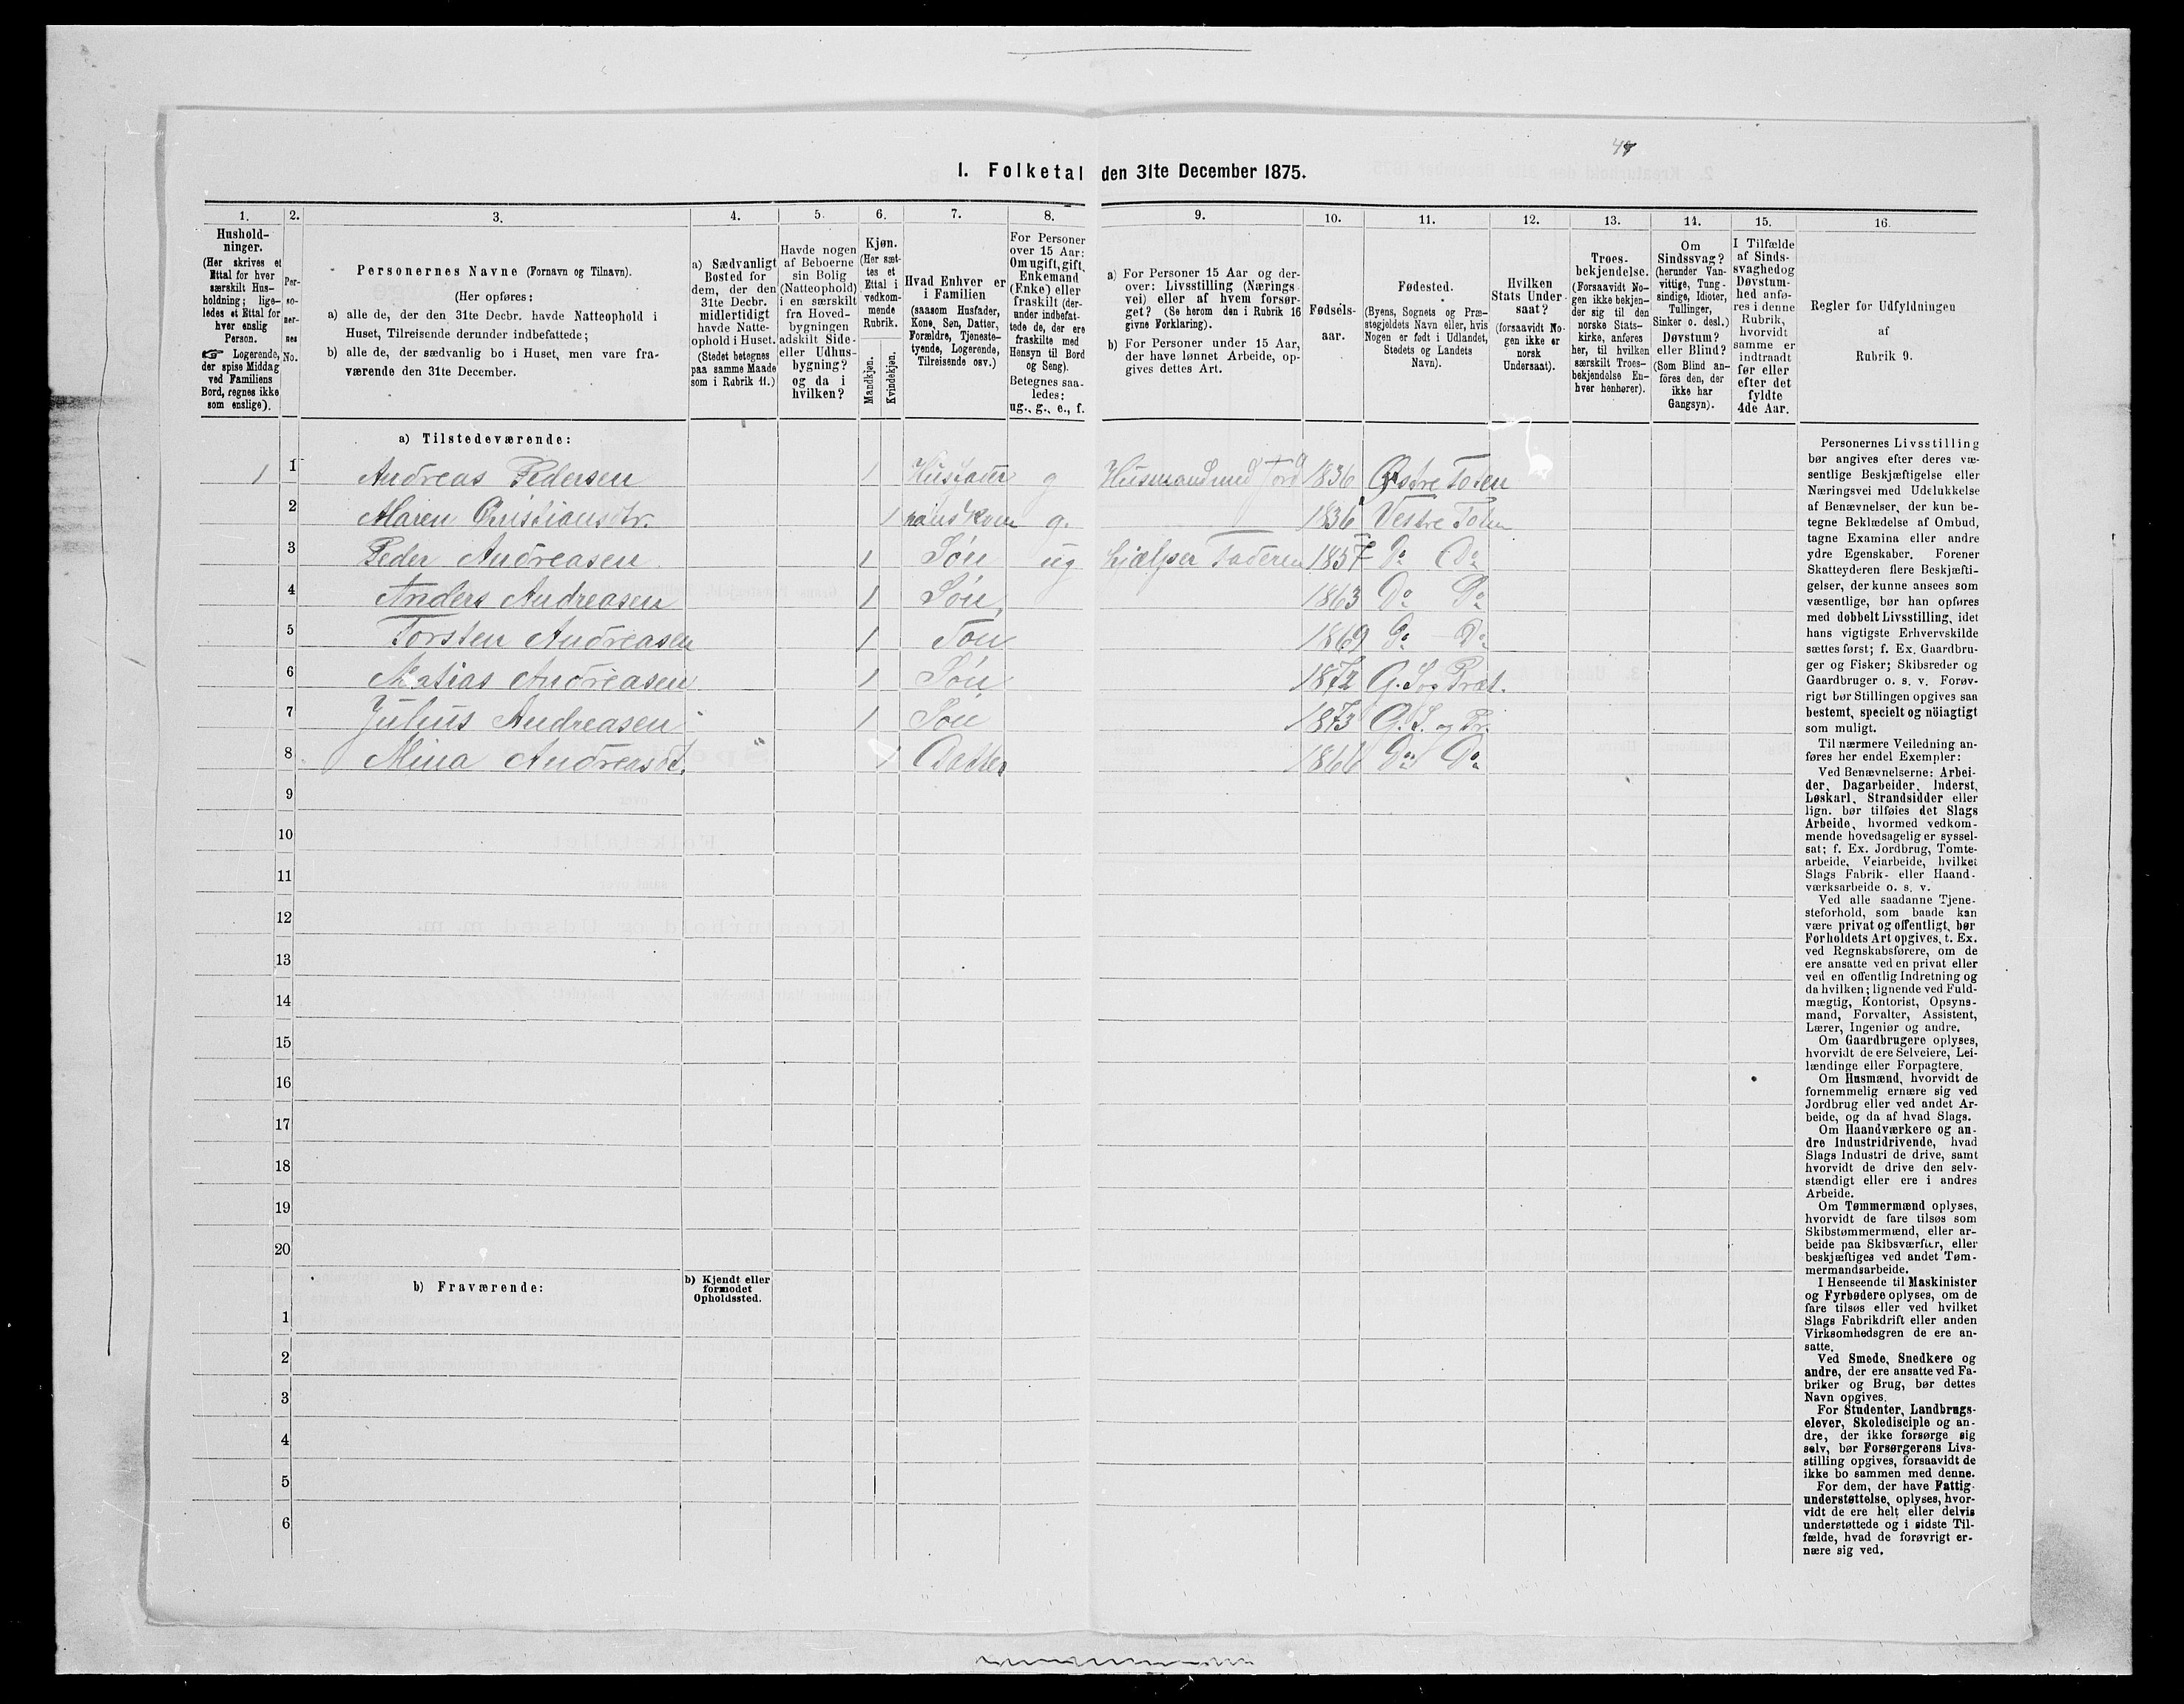 44
1. Folketal den 31te December 1875.
1. 2. 3. 4. 5. 6. 7. 8. 9. 10. 11. 12. 13. 14. 15. 16.
Hushold-
ninger.
(Her skrives et
Ettal for hver
særskilt Hus-
holdning; lige-
ledes et Ettal for
hver enslig
Person.
☞ Logerende,
der spise Middag
ved Familiens
Bord, regnes ikke
som enslige).
Per-
so-
ner-
nes
No.
Personernes Navne (Fornavn og Tilnavn).
(Her opføres:
a) alle de, der den 31te Decbr. havde Natteophold i
Huset, Tilreisende derunder indbefattede;
b) alle de, der sædvanlig bo i Huset, men vare fra-
værende den 31te December.
a) Sædvanligt
Bosted for
dem, der den
31te Decbr.
midlertidigt
havde Natte-
ophold i Huset.
(Stedet betegnes
paa samme Maade
som i Rubrik 11.)
Havde nogen
af Beboerne
sin Bolig
(Natteophold)
i en særskilt
fra Hoved-
bygningen
adskilt Side-
eller Udhus-
bygning?
og da i
hvilken?
Kjøn.
(Her sæt-
tes et
Ettal i
vedkom-
mende
Rubrik.
Mandkjøn.
Kvindekjøn.
Hvad Enhver er
i Familien
(saasom Husfader,
Kone, Søn, Datter,
Forældre, Tjeneste-
tyende, Logerende,
Tilreisende osv.)
For Personer
over 15 Aar:
Om ugift, gift,
Enkemand
(Enke) eller
fraskilt (der-
under indbefat-
tede de, der ere
fraskilte med
Hensyn til Bord
og Seng).
Betegnes saa-
ledes:
ug., g., e., f.
a) For Personer 15 Aar og der-
over: Livsstilling (Nærings-
vei) eller af hvem forsør-
get? (Se herom den i Rubrik 16
givne Forklaring).
b) For Personer under 15 Aar,
der have lønnet Arbeide, op-
gives dettes Art.
Fødsels-
aar.
Fødested.
(Byens, Sognets og Præ-
stegjeldets Navn eller, hvis
Nogen er født i Udlandet,
Stedets og Landets
Navn).
Hvilken
Stats Under-
saat?
(forsaavidt No-
gen ikke er
norsk
Undersaat).
Troes-
bekjendelse.
(Forsaavidt No-
gen ikke bekjen-
der sig til den
norske Stats-
kirke, anføres
her, til hvilken
særskilt Troes-
bekjendelse En-
hver henhører).
Om
Sindssvag?
(herunder Van-
vittige, Tung-
sindige, Idioter,
Tullinger,
Sinker o. desl.)
Døvstum?
eller Blind?
(Som Blind an-
føres den, der
ikke har
Gangsyn).
I Tilfælde
af Sinds-
svaghed og
Døvstum-
hed anfø-
res i denne
Rubrik,
hvorvidt
samme er
indtraadt
før eller
efter det
fyldte
4de Aar.
Regler for Udfyldningen
af
Rubrik 9.
a) Tilstedeværende:
1 1 Andreas Pedersen 1 Husfader g Husmand med Jord 1836 Østre Toten
2 Maren Christiansdtr. 1 hans Kone g. 1836 Vestre Toten
3 Peder Andreasen 1 Søn ug hjælper Faderen 1857 Do Do
4 Anders Andreasen 1 Søn 1863 Do Do
5 Torsten Andreasen 1 Søn 1869 Do Do
6 Matias Andreasen 1 Søn 1872 G. S. og Præst.
7 Julius Andreasen 1 Søn 1873 G. S. og Pr.
8 Mina Andreasdt. 1 Datter 1866 Do Do
9
10
11
12
13
14
15
16
17
18
19
20
b) Fraværende:
b) Kjendt eller
formodet
Opholdssted.
1
2
3
4
5
6
Personernes Livsstilling
bør angives efter deres væ-
sentlige Beskjæftigelse eller
Næringsvei med Udelukkelse
af Benævnelser, der kun be-
tegne Beklædelse af Ombud,
tagne Examina eller andre
ydre Egenskaber. Forener
Skatteyderen flere Beskjæfti-
gelser, der kunne ansees som
væsentlige, bør han opføres
med dobbelt Livsstilling, idet
hans vigtigste Erhvervskilde
sættes først; f. Ex. Gaardbru-
ger og Fisker; Skibsreder og
Gaardbruger o. s. v. Forøv-
rigt bør Stillingen opgives saa
bestemt, specielt og nöiagtigt
som muligt.
Til nærmere Veiledning an-
føres her endel Exempler:
Ved Benævnelserne: Arbei-
der, Dagarbeider, Inderst,
Løskarl, Strandsidder eller
lign. bør tilføies det Slags
Arbeide, hvormed vedkom-
mende hovedsagelig er syssel-
sat; f. Ex. Jordbrug, Tomte-
arbeide, Veiarbeide, hvilket
Slags Fabrik- eller Haand-
værksarbeide o. s. v.
Ved alle saadanne Tjene-
steforhold, som baade kan
være privat og offentligt, bør
Forholdets Art opgives, t. Ex.
ved Regnskabsførere, om de
ere ansatte ved en privat eller
ved en offentlig Indretning og
da hvilken; lignende ved Fuld-
mægtig, Kontorist, Opsyns-
mand, Forvalter, Assistent,
Lærer, Ingeniør og andre.
Om Gaardbrugere oplyses,
hvorvidt de ere Selveiere, Lei-
lændinge eller Forpagtere.
Om Husmænd, hvorvidt de
fornemmelig ernære sig ved
Jordbrug eller ved andet Ar-
beide, og da af hvad Slags.
Om Haandværkere og an-
dre Industridrivende, hvad
Slags Industri de drive, samt
hvorvidt de drive den selv-
stændigt eller ere i andres
Arbeide.
Om Tømmermænd oplyses,
hvorvidt de fare tilsøs som
Skibstømmermænd, eller ar-
beide paa Skibsværfter, eller
beskjæftiges ved andet Tøm-
mermandsarbeide.
I Henseende til Maskinister
og Fyrbødere oplyses, om de
fare tilsøs eller ved hvilket
Slags Fabrikdrift eller anden
Virksomhedsgren de ere an-
satte.
Ved Smede, Snedkere og
andre, der ere ansatte ved Fa-
briker og Brug, bør dettes
Navn opgives.
For Studenter, Landbrugs-
elever, Skoledisciple og an-
dre, der ikke forsørge sig
selv, bør Forsørgerens Livs-
stilling opgives, forsaavidt de
ikke bo sammen med denne.
For dem, der have Fattig-
understøttelse, oplyses, hvor-
vidt de ere helt eller delvis
understøttede og i sidste Til-
fælde, hvad de forøvrigt er-
nære sig ved.